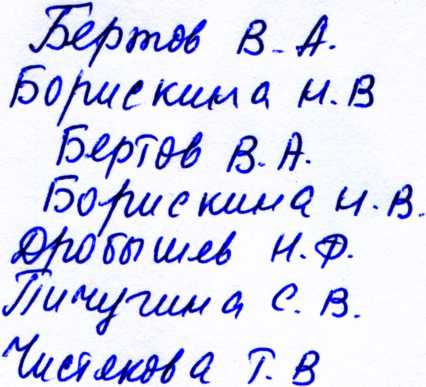 Бертов В. А.
Борискина Н. В
Бертов В. А.
Борискина Н. В.
Дробышев Н. Ф.
Пичугина С. В.
Чистякова Т. В